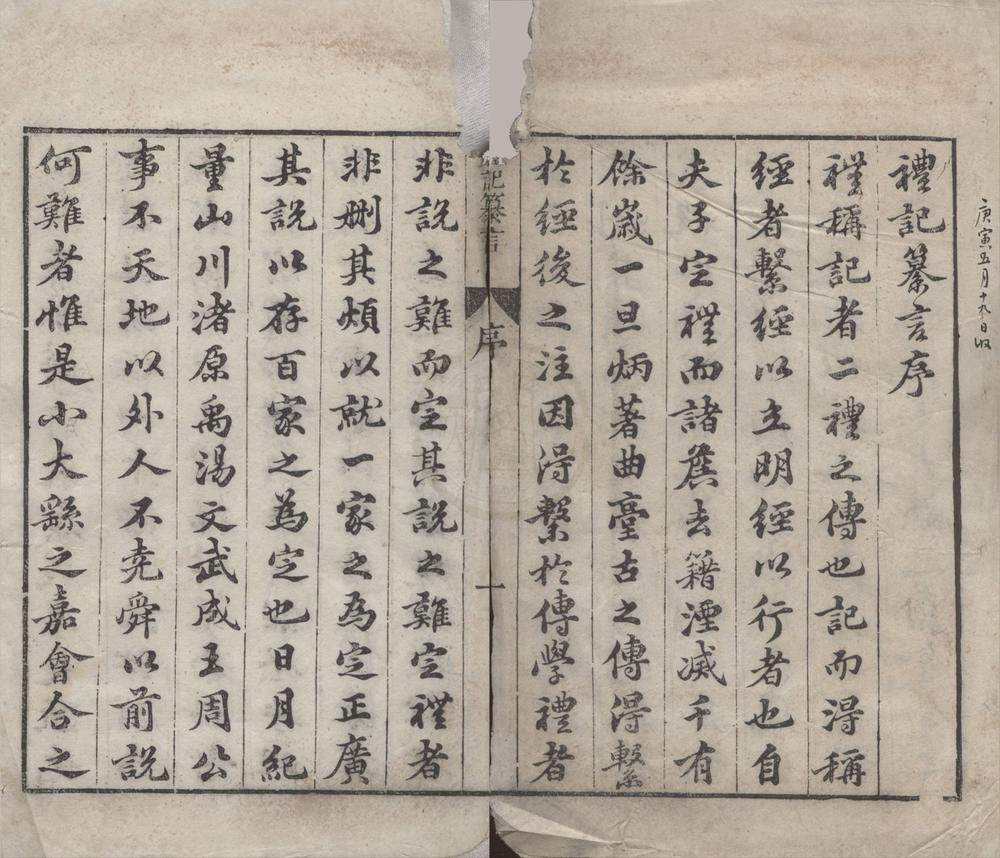 庚寅五月十九日收
禮記纂言序
禮稱記者二禮之傳也記而得稱
經者繫經以立明經以行者也自
夫子定禮而諸矦去籍湮滅千有
餘歲一旦炳著曲臺古之傳得繫
於經後之注因得繫於傳學禮者
禮記纂言 序 一
非說之難而定其說之難定禮者
非刪其煩以就一家之為定正廣
其說以存百家之為定也日月紀
量山川渚原禹湯文武成王周公
事不天地以外人不堯舜以前說
何難者惟是小大繇之嘉會合之